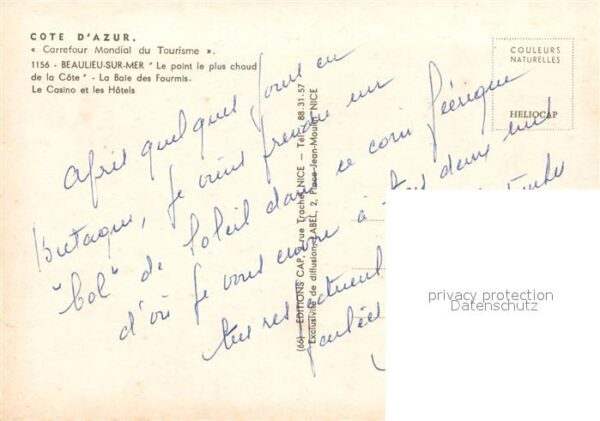 COTE D'AZUR.
« Carrefour Mondial du Tourisme ».
1156 - BEAULIEU-SUR-MER " Le point le plus chaud
de la Côte " - La Baie des Fourmis.
Le Casino et les Hôtels
COULEURS
NATURELLES
HELIOCAP
(66) — EDITIONS CAP, rue Trachel, NICE — Tél. 88.31.57
Exclusivité de diffusion, LABEL, 2, Place Jean-Moulin, NICE
Après quelques jours en
Bretagne, je viens prendre un
"bol" de soleil dans ce coin féerique
d'où je vous envoie à tous deux
privacy protection
Datenschutz